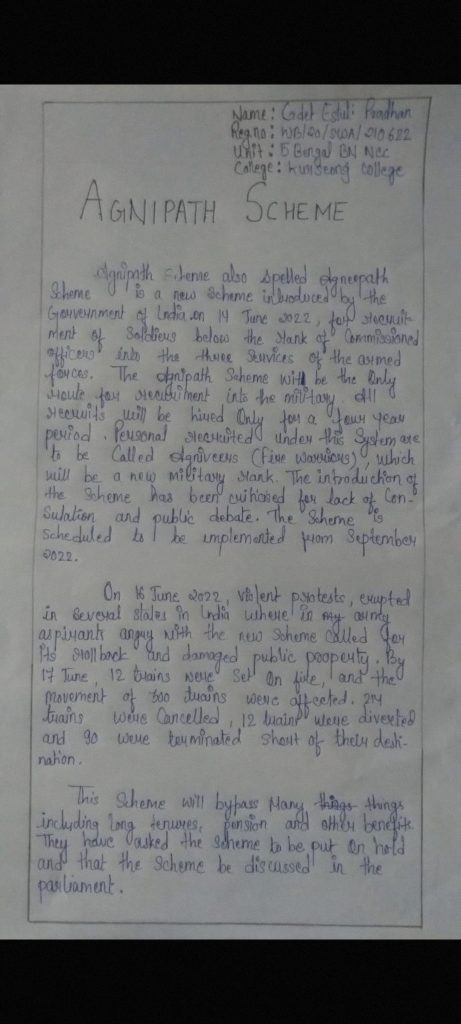 Name: Cadet Estuti Pradhan
Reg no: WB/20/SWA/210622
Unit: 5 Bengal BN NCC
College: Kurseong College
AGNIPATH SCHEME
Agnipath Scheme also spelled Agneepath
Scheme is a new scheme introduced by the
Government of India on 14 June 2022, for recruit-
ment of Soldiers below the rank of Commissioned
officers into the three services of the armed
forces. The Agnipath Scheme will be the Only
route for recruitment into the military. All
recruits will be hired Only for a four year
period. Personal recruited under this System are
to be Called Agniveers (Fire Warriors), which
will be a new military rank. The introduction of
the Scheme has been criticised for lack of Con-
sulation and public debate. The Scheme is
scheduled to be implemented from September
2022.
On 16 June 2022, violent protests, erupted
in several states in India where in army
aspirants angry with the new Scheme Called for
its rollback and damaged public property. By
17 June, 12 trains were set On fire, and the
movement of 300 trains were affected. 214
trains were Cancelled, 12 trains were diverted
and 90 were terminated short of their desti-
nation.
This Scheme will bypass Many things things
including long tenures, pension and other benefits.
They have asked the scheme to be put On hold
and that the Scheme be discussed in the
parliament.